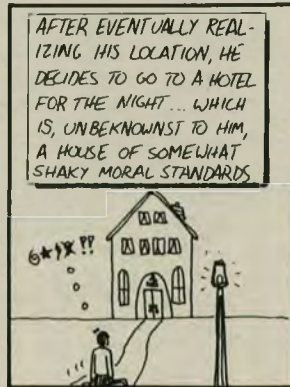 AFTER EVENTUALLY REAL-
IZING HIS LOCATION, HE
DECIDES TO GO TO A HOTEL
FOR THE NIGHT... WHICH
IS, UNBEKNOWNST TO HIM,
A HOUSE OF SOMEWHAT
SHAKY MORAL STANDARDS